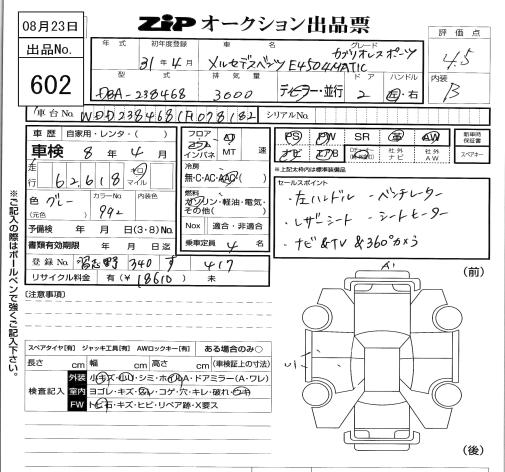 08月23日
出品No.
602
ZIP オークション出品票
評価点
4.5
内装
B
年式 初年度登録 車名 グレード
31年4月 メルセデスベンツ E450 4MATIC カブリオレスポーツ
型式 排気量 ドア ハンドル
DBA-238468 3000 ディーラー・並行 2 右・左
車台No. WDD2384681F078182 シリアルNo.
車歴 自家用・レンタ・( )
車検 8年4月
走行 62,618 キロ マイル
色 グレー カラーNo. 992
(元色)
予備検 年 月 日(3・8)No.
書類有効期限 年 月 日迄
登録No. 習志野 340 す 417
リサイクル料金 有(¥18610) 未
フロア コラム インパネ AT MT 速
冷房 無・C・AC・AAC
燃料 ガソリン・軽油・電気・その他( )
Nox 適合・非適合
乗車定員 4名
PS PW SR 革 AW
ナビ エアB 社外ナビ 社外AW
新車時保証書
スペアキー
※上記太枠内は標準装備
セールスポイント
・左ハンドル ・ベンチレーター
・レザーシート ・シートヒーター
・ナビ&TV&360°カメラ
(注意事項)
スペアタイヤ[有] ジャッキ工具[有] AWロックキー[有] ある場合のみ○
長さ cm 幅 cm 高さ cm (車検証上の寸法)
検査記入
外装 小キズ・小U・シミ・ホイルA・ドアミラー(A・ワレ)
室内 ヨゴレ・キズ・スレ・コゲ・穴・キレ・破れ・ウキ
FW トビ石・キズ・ヒビ・リペア跡・X要ス
(前)
(後)
※ご記入の際はボールペンで強くご記入下さい。